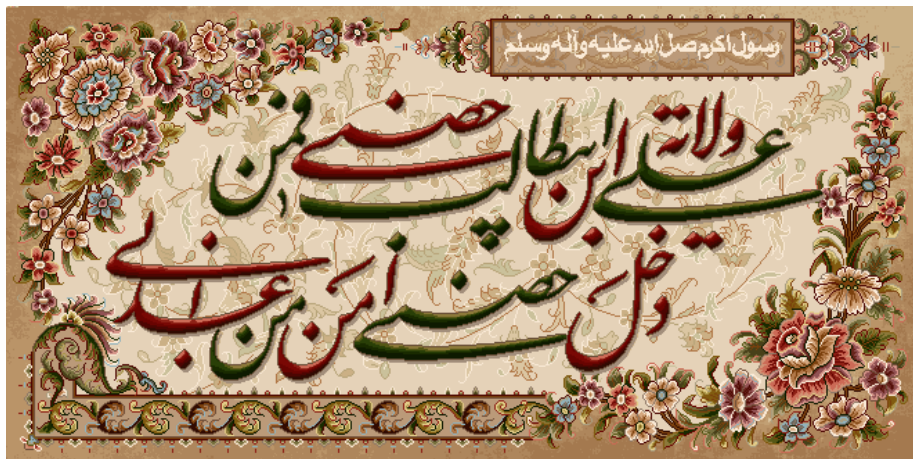 رسول اکرم صل الله علیه وآله وسلم
ولایة علی ابن ابیطالب حصنی فمن
دخل حصنی امن من عذابی